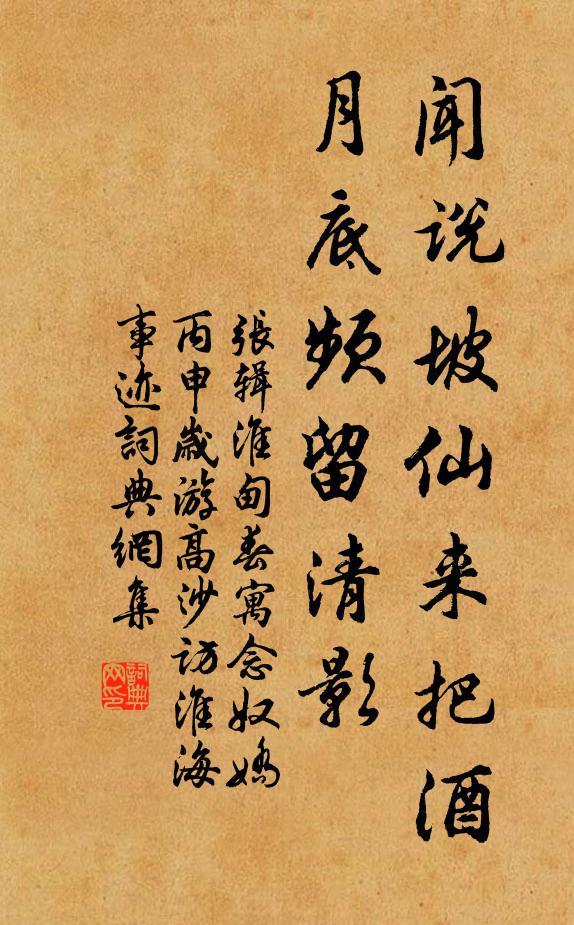 闻说坡仙来把酒
月底频留清影
張辑淮甸春寓念奴嬌
丙申歲游高沙访淮海
事迹詞典網集
詞典
网印